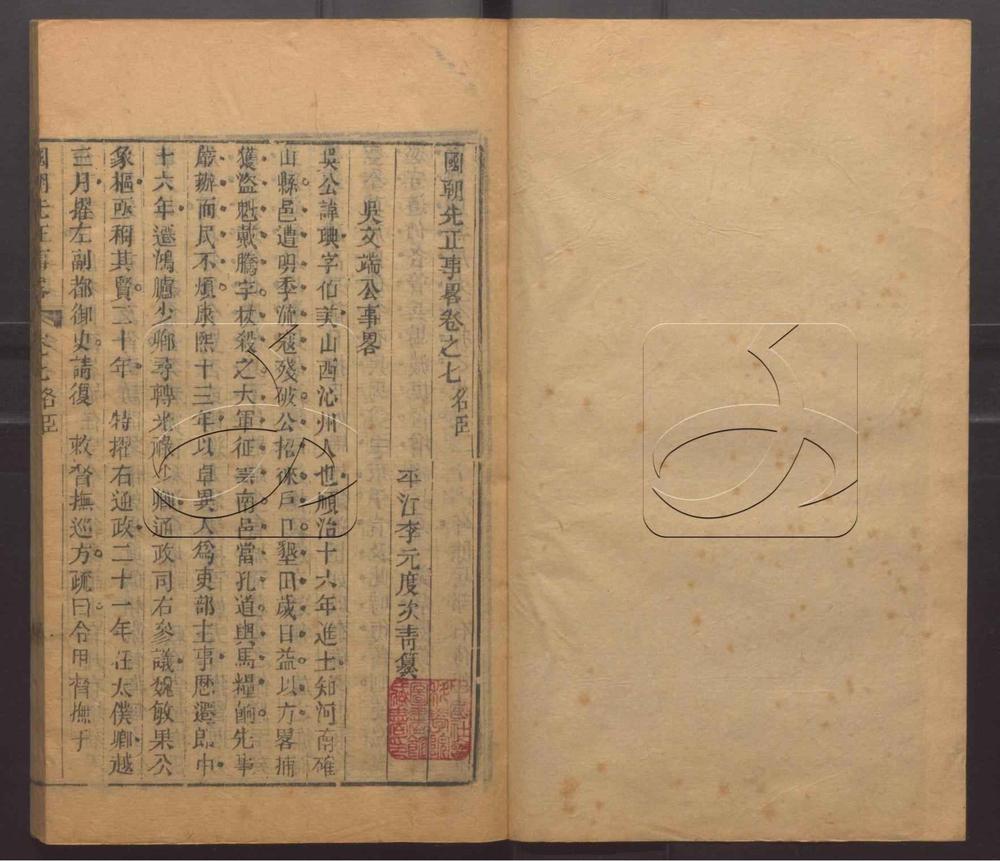 國朝先正事畧卷之七 名臣
平江李元度次青纂
吳文端公事畧
吳公諱琠字伯美山西沁州人也順治十六年進士知河南確
山縣邑遭明季流寇殘破公招徠戶口墾田歲日益以方畧捕
獲盜魁戴騰字杖殺之大軍征雲南邑當孔道輿馬糧餉先事
嚴辦而民不煩康熙十三年以卓異入為吏部主事歷遷郎中
十六年遷鴻臚少卿尋轉光祿少卿通政司右參議魏敏果公
象樞亟稱其賢二十年 特擢右通政二十一年 太僕卿越
三月擢左副都御史請復 敕督撫巡方疏曰令甲督撫于
國朝先正事畧 卷七 名臣